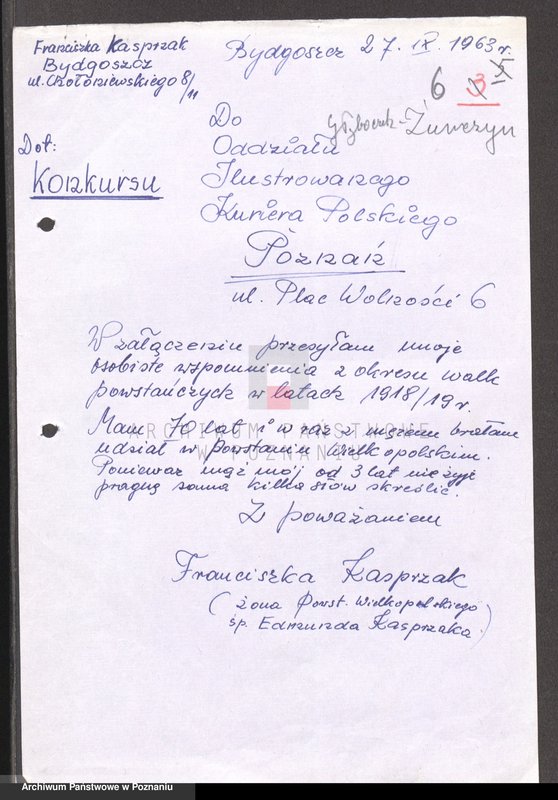 Franciszka Kasprzak
Bydgoszcz
ul. Czołoniewskiego 8/11
Bydgoszcz 27. IX. 1963 r.
6 3 5
Żuwczyn
Do
Oddziału
Ilustrowanego
Kuriera Polskiego
Poznań
ul. Plac Wolności 6
Dot:
Konkursu
W załączeniu przesyłam moje
osobiste wspomnienia z okresu walk
powstańczych w latach 1918/19 r.
Mam 70 lat i wraz z mężem brałam
udział w Powstaniu Wielkopolskim.
Ponieważ mąż mój od 3 lat nie żyje
pragnę sama kilka słów skreślić.
Z poważaniem
Franciszka Kasprzak
(żona Powst. Wielkopolskiego
śp. Edmunda Kasprzaka)
ARCHIWUM PAŃSTWOWE
W POZNANIU
Archiwum Państwowe w Poznaniu